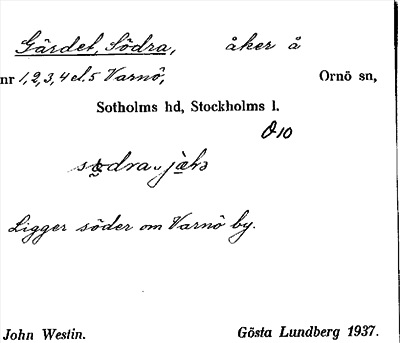 Gärdet, Södra, åker å
nr 1,2,3,4 el. 5 Varnö, Ornö sn,
Sotholms hd, Stockholms l.
Ö10
Ligger söder om Varnö by.
John Westin. Gösta Lundberg 1937.